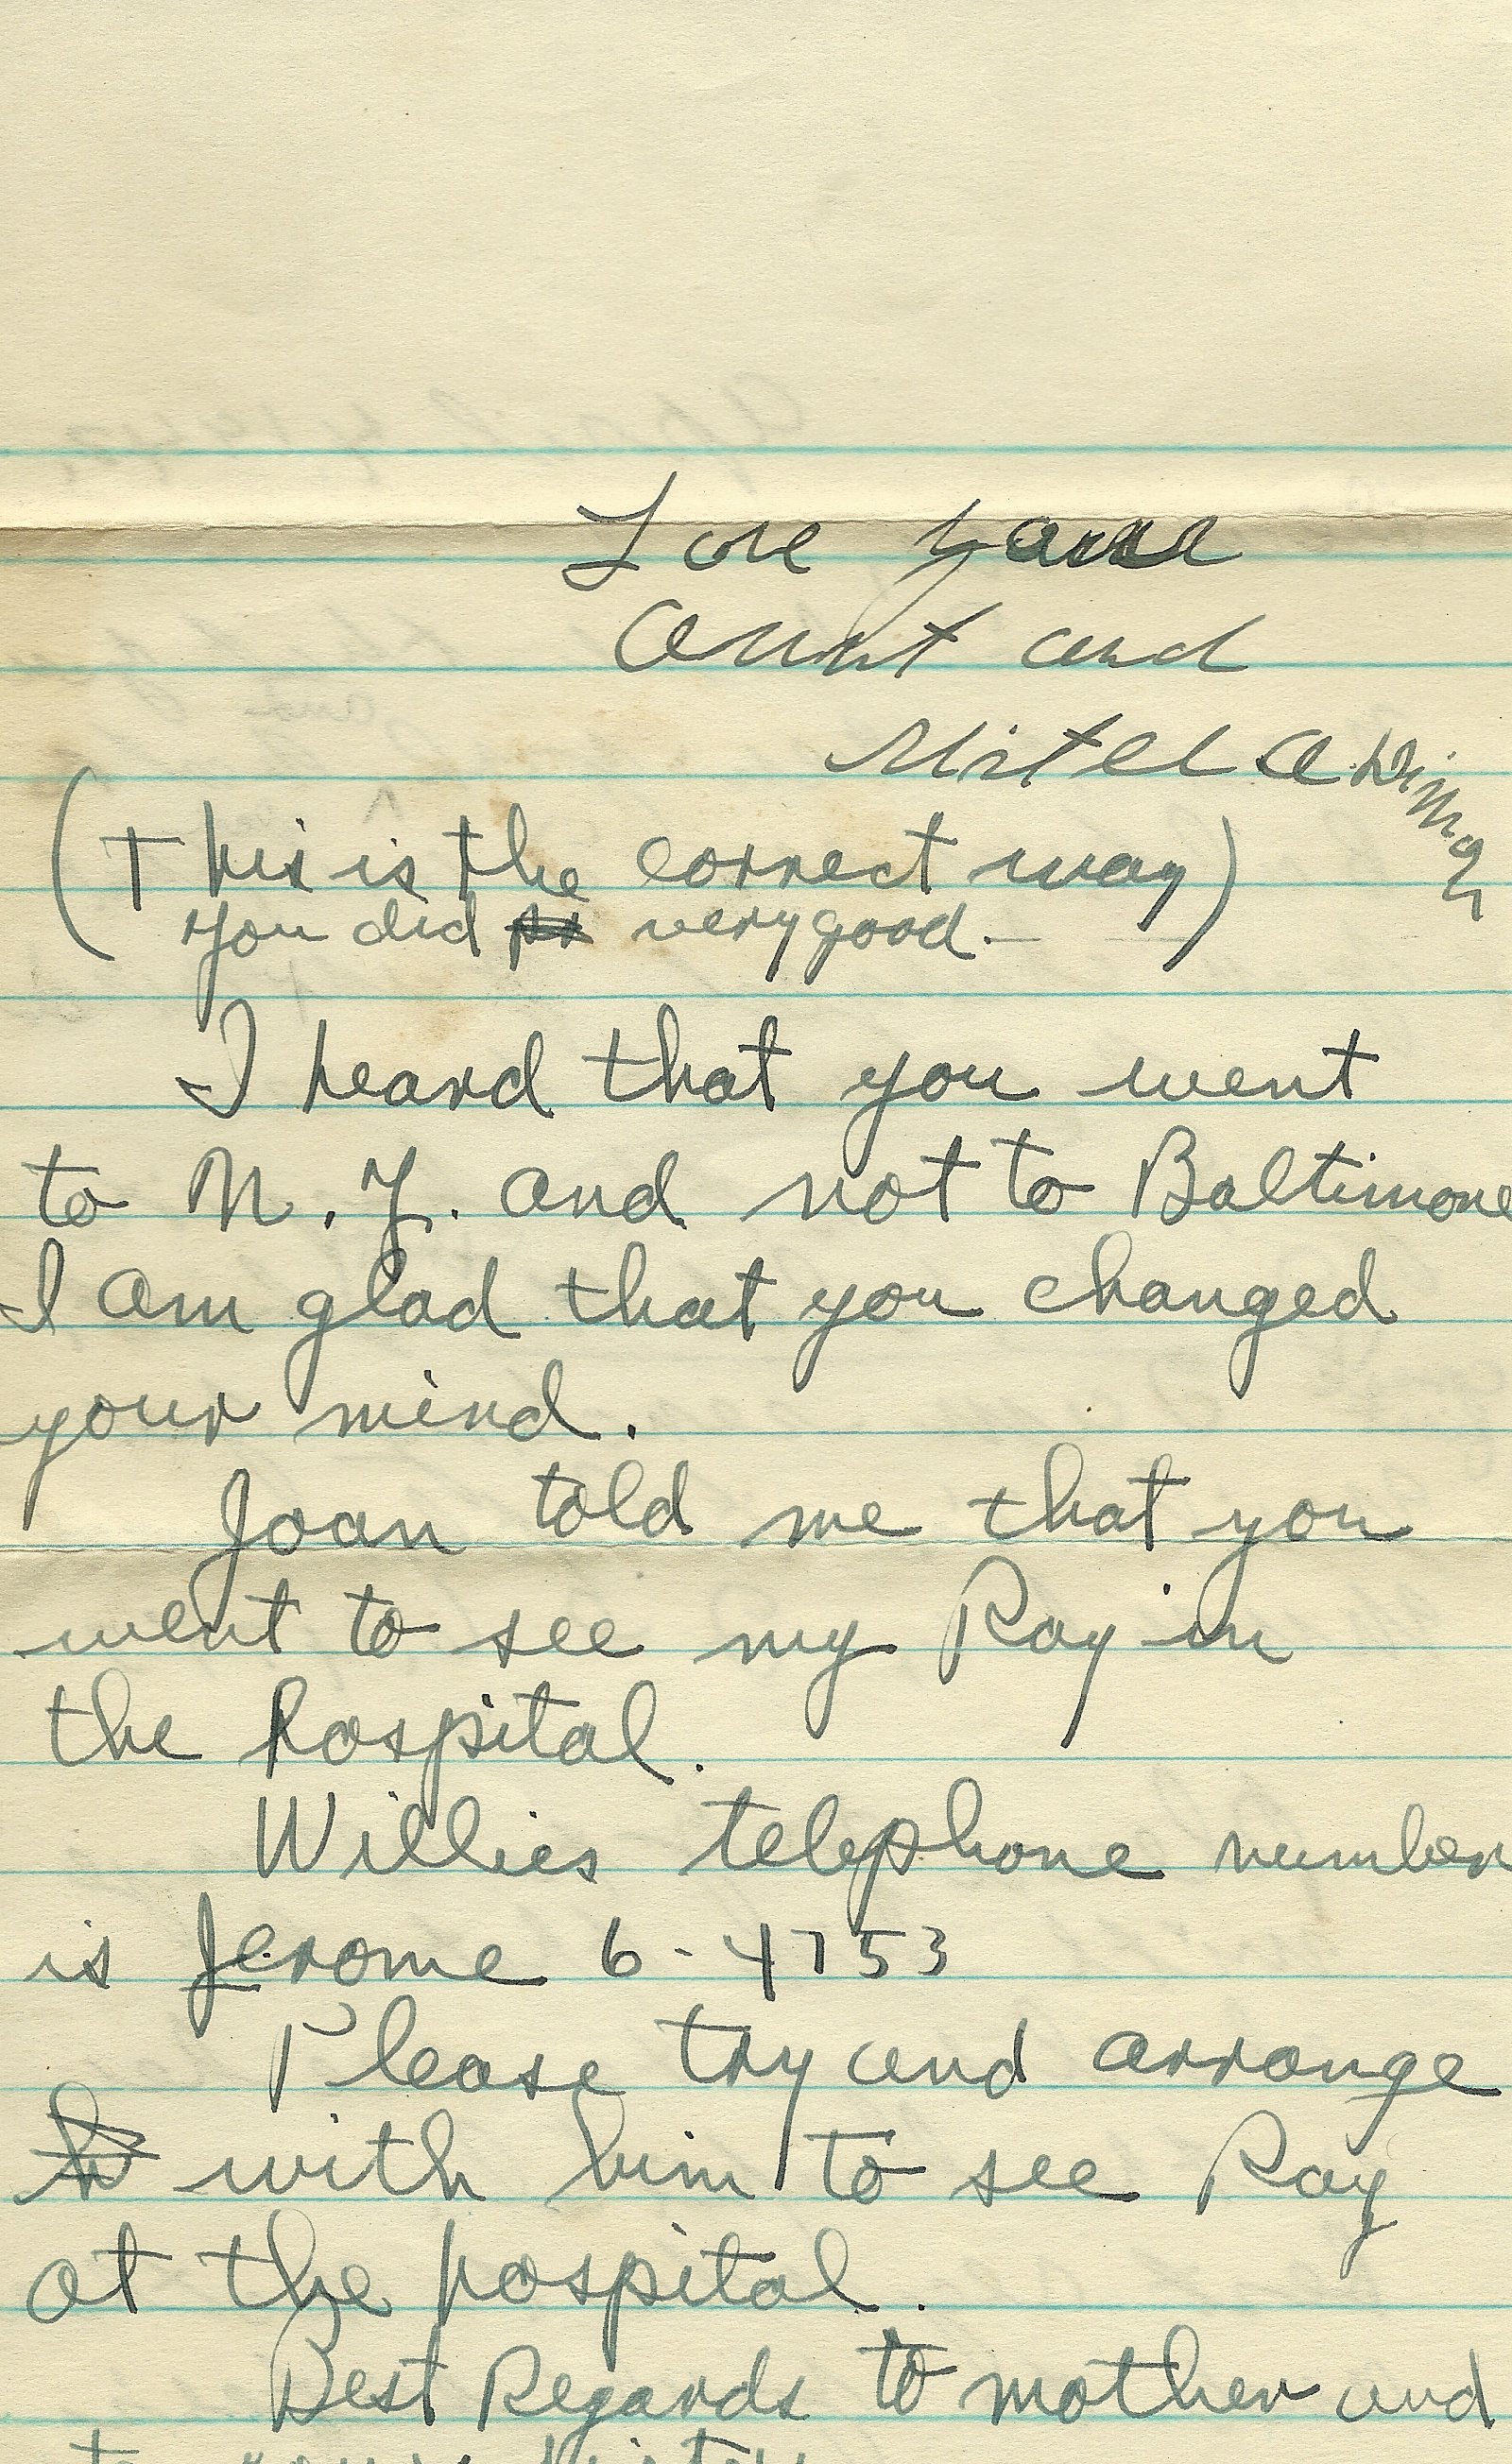 Love
Aunt and
(This is the correct way)
you did very good.
I heard that you went
to N.Y. and not to Baltimore
I am glad that you changed
your mind.
Joan told me that you
went to see my Ray in
the hospital.
Willies telephone number
is Jerome 6-4753
Please try and arrange
with him to see Ray
at the hospital.
Best Regards to mother and
to